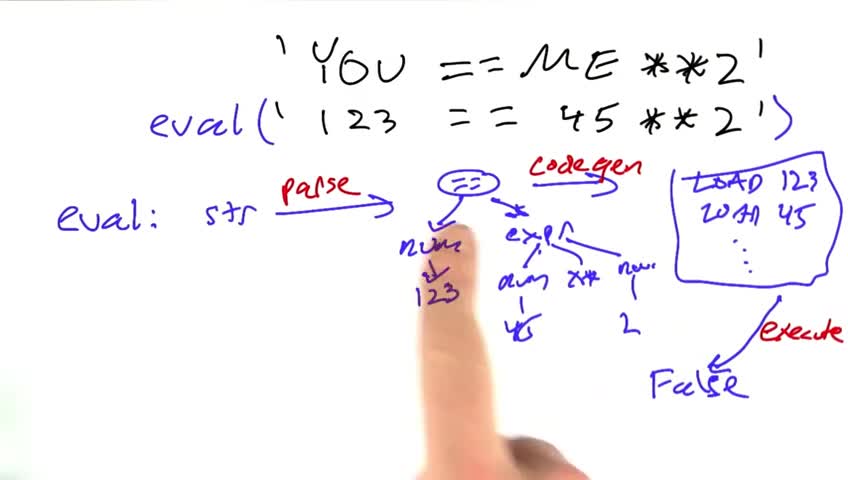 'YOU == ME **2'
eval(' 123 == 45 **2')
eval: str parse == codegen
LOAD 123
LOAD 45
num expr
num ** num
123 45 2
execute
False